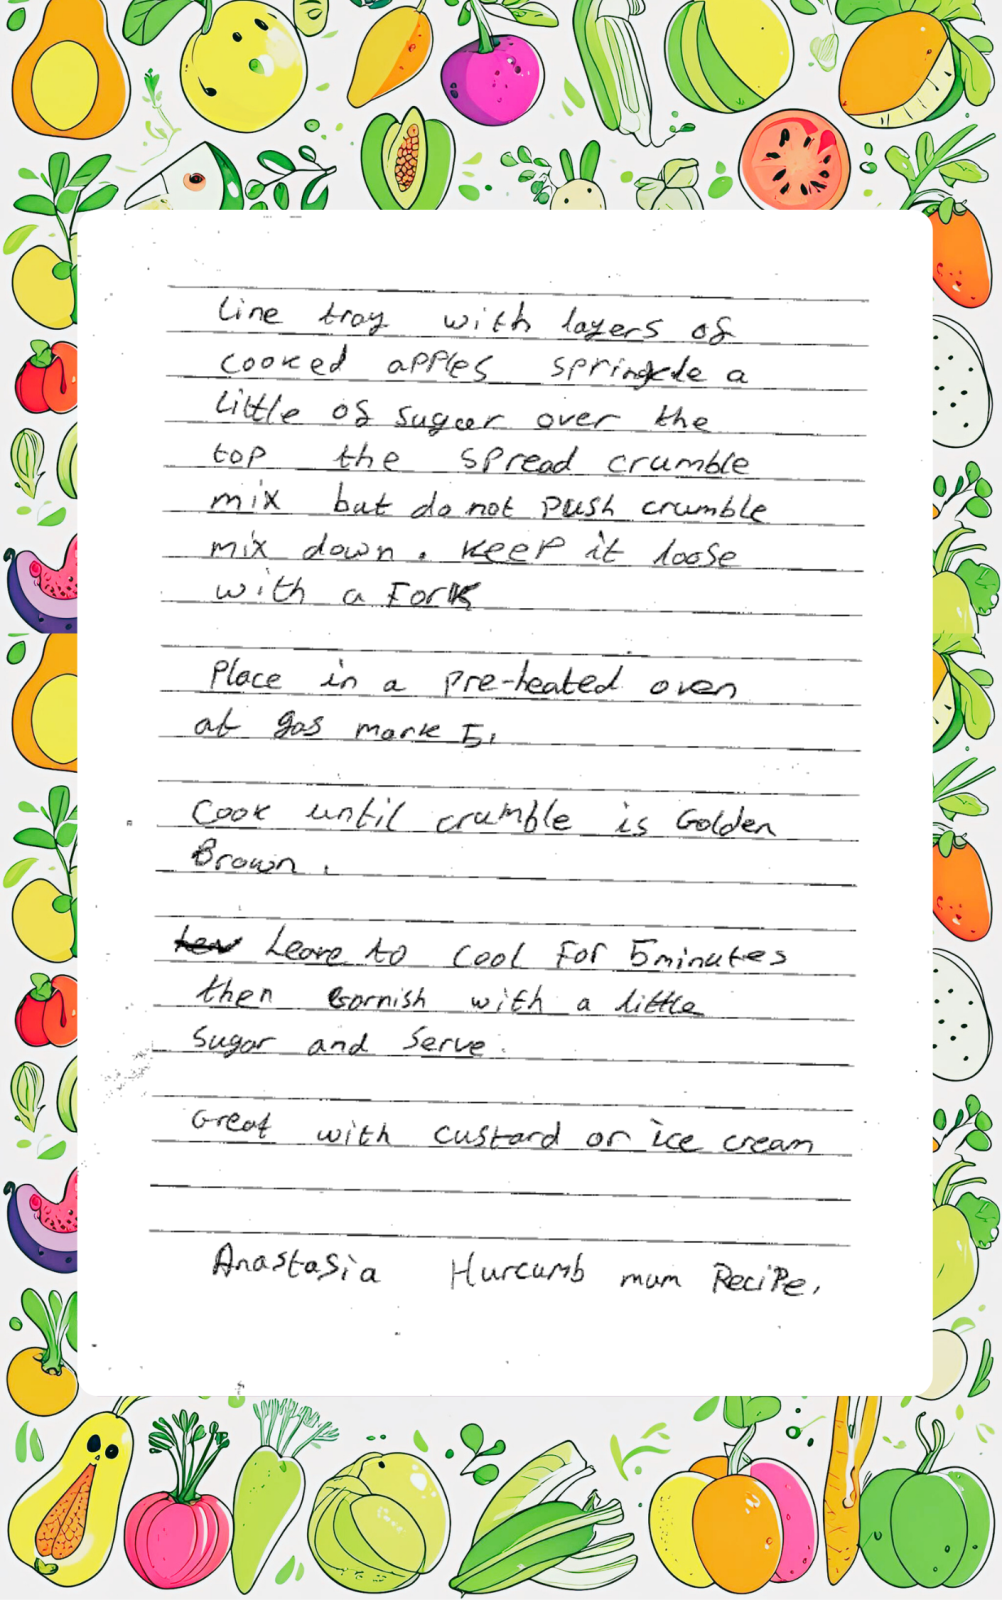 Line tray with layers of
cooked apples springkle a
little of sugar over the
top the spread crumble
mix but do not push crumble
mix down. Keep it loose
with a Fork
Place in a pre-heated oven
at gas mark 5,
Cook until crumble is Golden
Brown.
Leave to cool For 5 minutes
then Garnish with a little
Sugar and Serve.
Great with custard or ice cream
Anastasia Hurcumb mum Recipe.